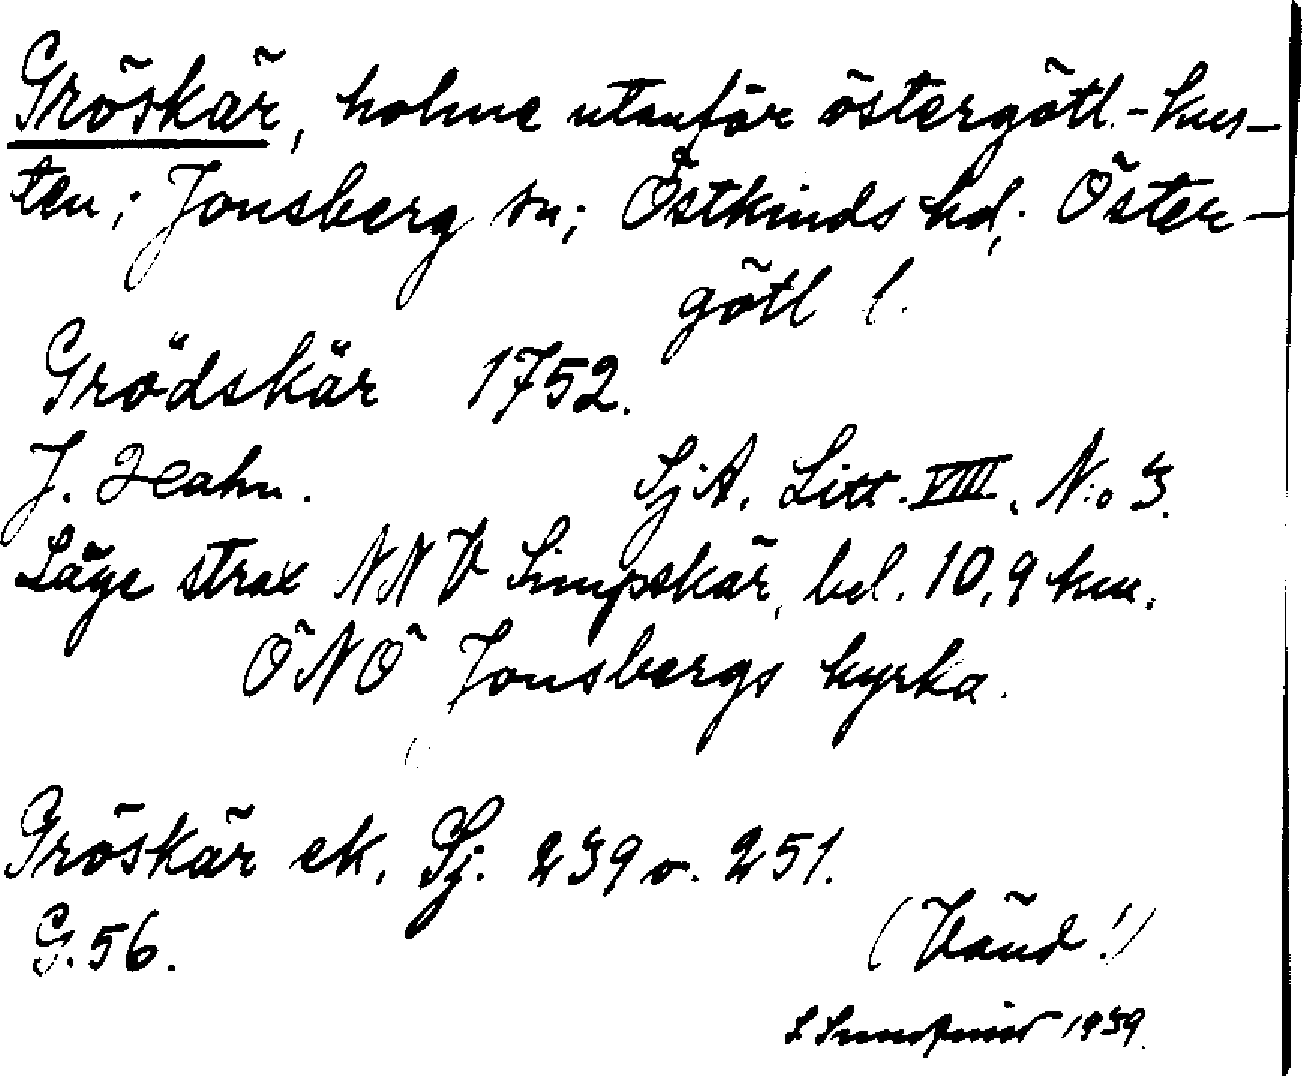 Gröskär, holme utanför östergötl.-kus-
ten; Jonsberg sn; Östkinds hd; Öster-
götl l.
Grödskär 1752.
J. Hahn. Sj.A. Litt. VIII. N:o 3.
Läge strax NNV Simpskär, bel. 10,9 km.
ÖNÖ Jonsbergs kyrka.
Gröskär ek. Sj. 239 o. 251.
G. 56.
(Vänd!)
S. 1939.